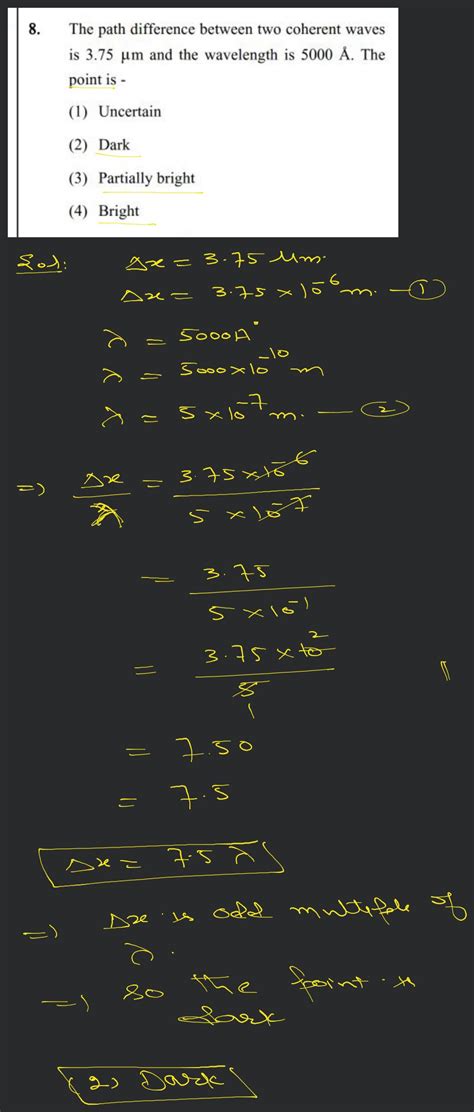 8. The path difference between two coherent waves
is 3.75 μm and the wavelength is 5000 Å. The
point is -
(1) Uncertain
(2) Dark
(3) Partially bright
(4) Bright
Sol:
Δx = 3.75 μm.
Δx = 3.75 × 10^-6 m. — ①
λ = 5000A°
λ = 5000×10^-10 m
λ = 5 × 10^-7 m. — ②
=) Δx/λ = 3.75×10^-6 / 5 × 10^-7
= 3.75 / 5 × 10^-1
= 3.75 × 10 2 / 5 1
= 7.50
= 7.5
Δx = 7.5 λ
=) Δx is odd multiple of
λ.
=) so the point is
dark
(2) Dark